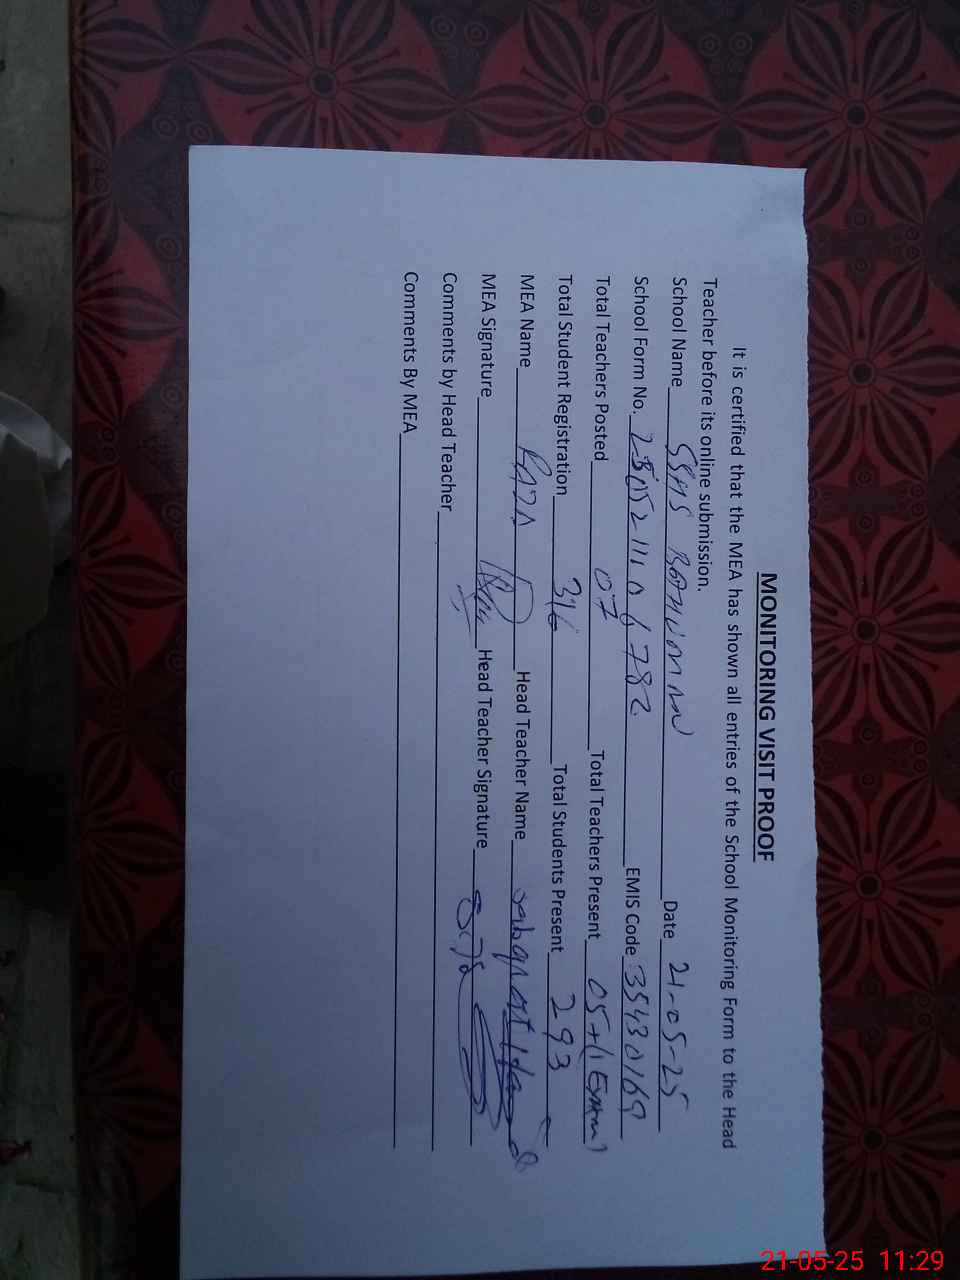 MONITORING VISIT PROOF
It is certified that the MEA has shown all entries of the School Monitoring Form to the Head
Teacher before its online submission.
School Name Date 21-05-25
School Form No. EMIS Code: 35430169
Total Teachers Posted 07 Total Teachers Present 05+(1 Exam)
Total Student Registration 316 Total Students Present 293
MEA Name RAZA Head Teacher Name
MEA Signature Head Teacher Signature
Comments by Head Teacher
Comments By MEA
21-05-25 11:29